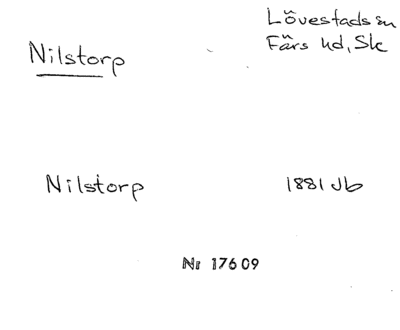 Nilstorp
Lövestads sn
Färs hd, Sk
Nilstorp
1881 Jb
Nr 17609